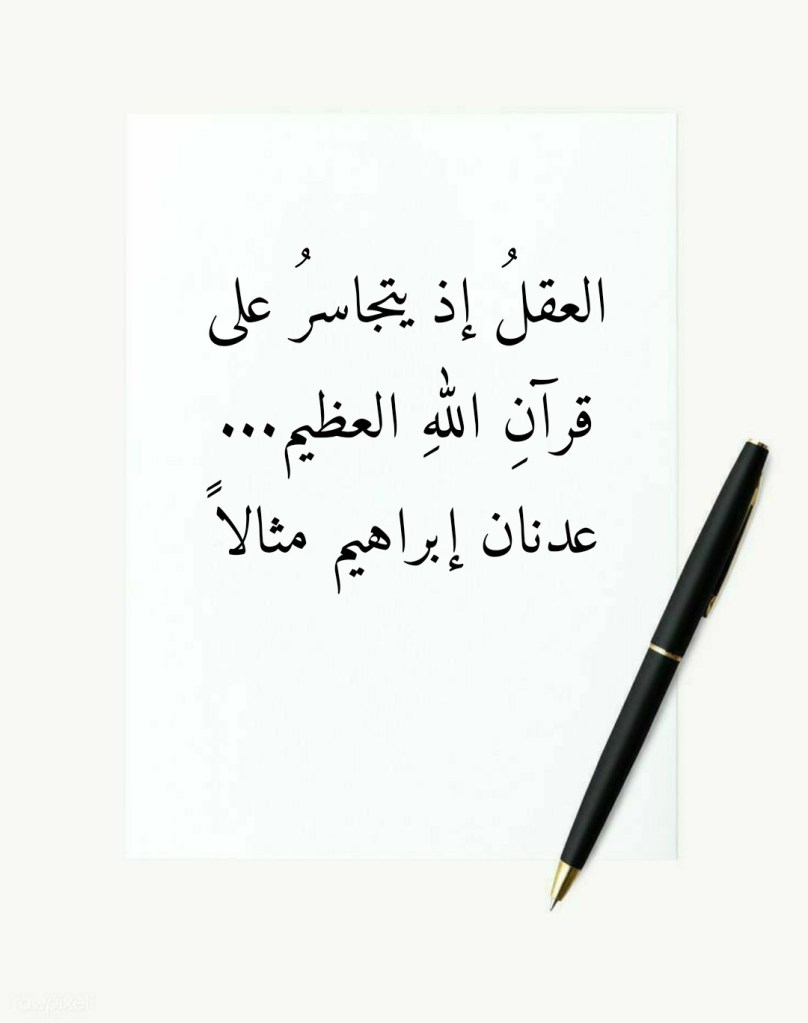 العقلُ إذ يتجاسرُ على
قرآنِ اللهِ العظيم...
عدنان إبراهيم مثالاً
rawpixel